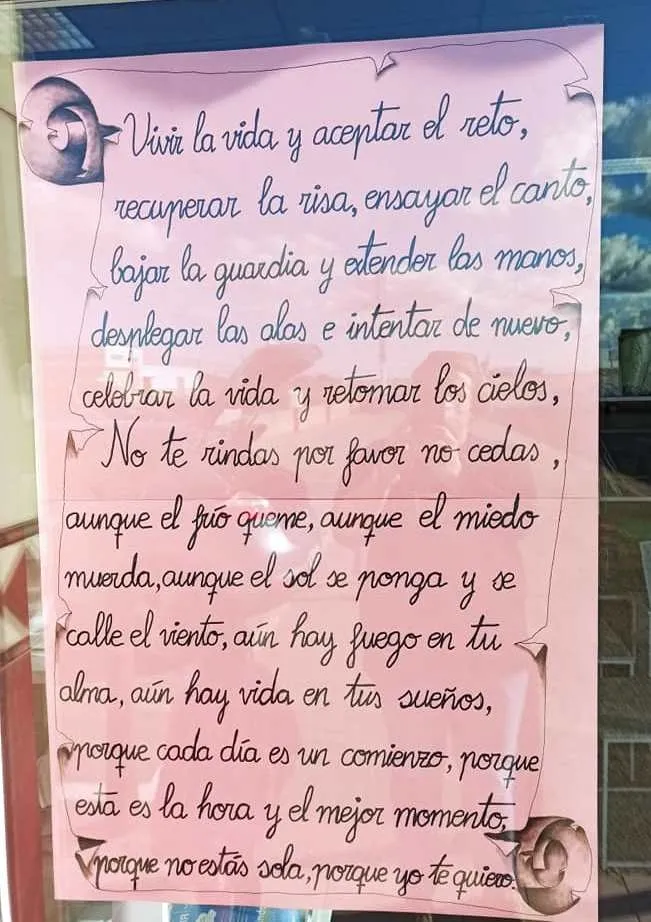 Vivir la vida y aceptar el reto,
recuperar la risa, ensayar el canto,
bajar la guardia y extender las manos,
desplegar las alas e intentar de nuevo,
celebrar la vida y retomar los cielos,
No te rindas por favor no cedas,
aunque el frío queme, aunque el miedo
muerda, aunque el sol se ponga y se
calle el viento, aún hay fuego en tu
alma, aún hay vida en tus sueños,
porque cada día es un comienzo, porque
esta es la hora y el mejor momento,
porque no estás sola, porque yo te quiero.